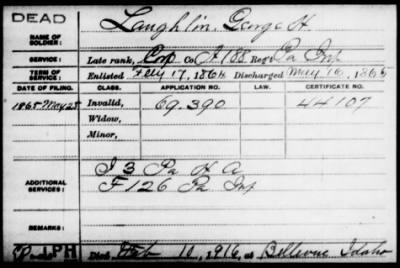 DEAD
NAME OF SOLDIER: Laughlin, George H.
SERVICE: Late rank, Corp Co. 188 Reg't Pa Inf
TERM OF SERVICE: Enlisted Feby 17, 1864 Discharged May 16, 1865
DATE OF FILING. CLASS. APPLICATION NO. LAW. CERTIFICATE NO.
1865 May 25 Invalid, 69.390 44107
Widow,
Minor,
ADDITIONAL SERVICES: I 3 Pa H A
F 126 Pa Inf
REMARKS:
Died Feb 10, 1916, at Bellevue Idaho